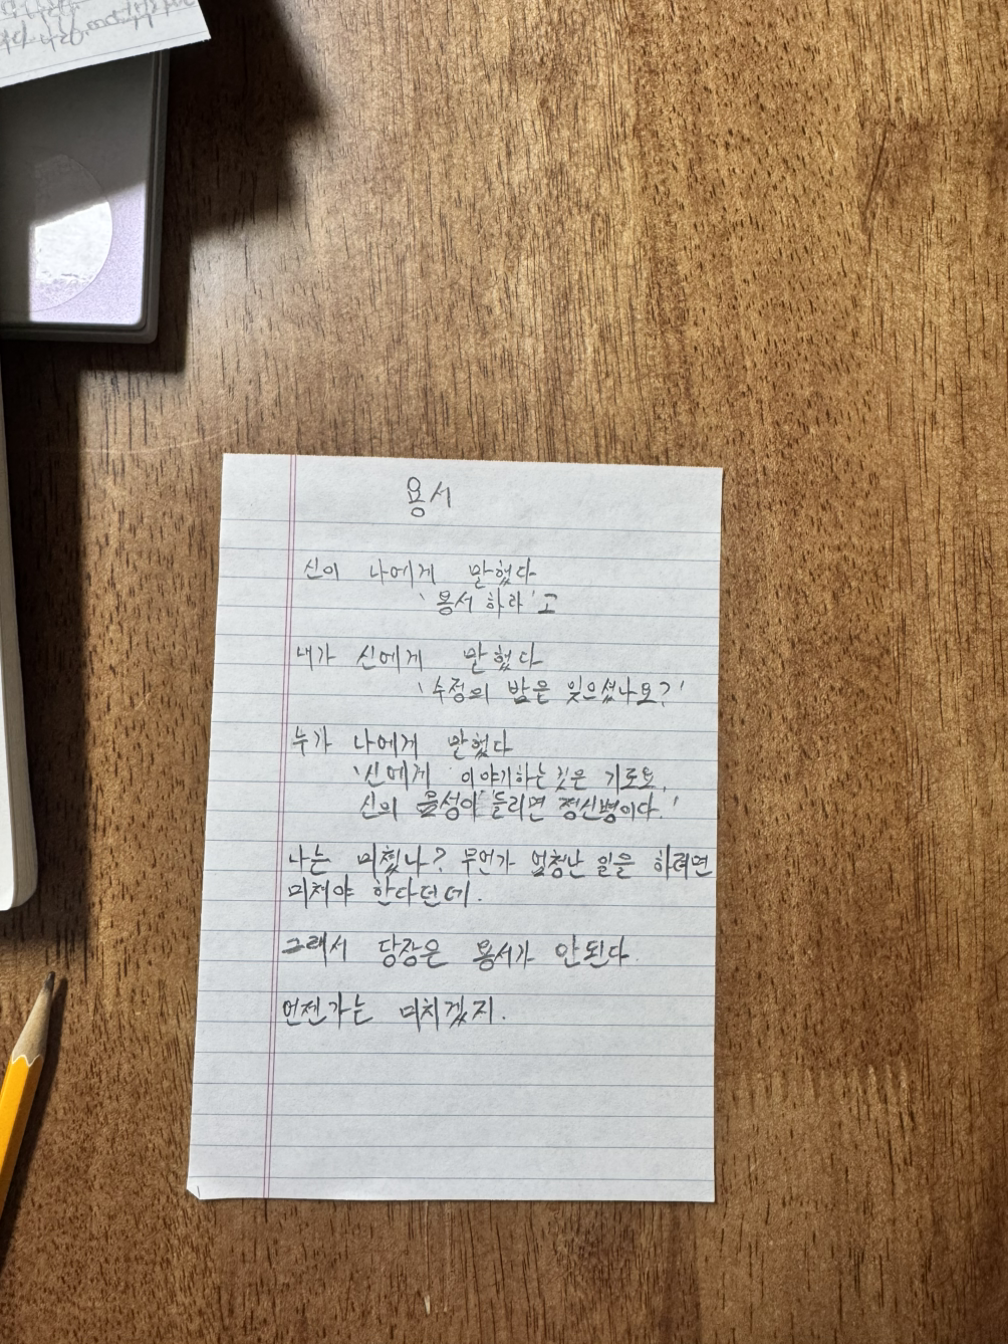 용서
신이 나에게 말했다
'용서 하라'고
내가 신에게 말했다
'수정의 밤은 잊으셨나요?'
누가 나에게 말했다
'신에게 이야기하는 것은 기로도,
신의 음성이 들리면 정신병이다.'
나는 미쳤나? 무언가 엄청난 일을 하려면
미쳐야 한다던데.
그래서 당장은 용서가 안된다.
언젠가는 미치겠지.